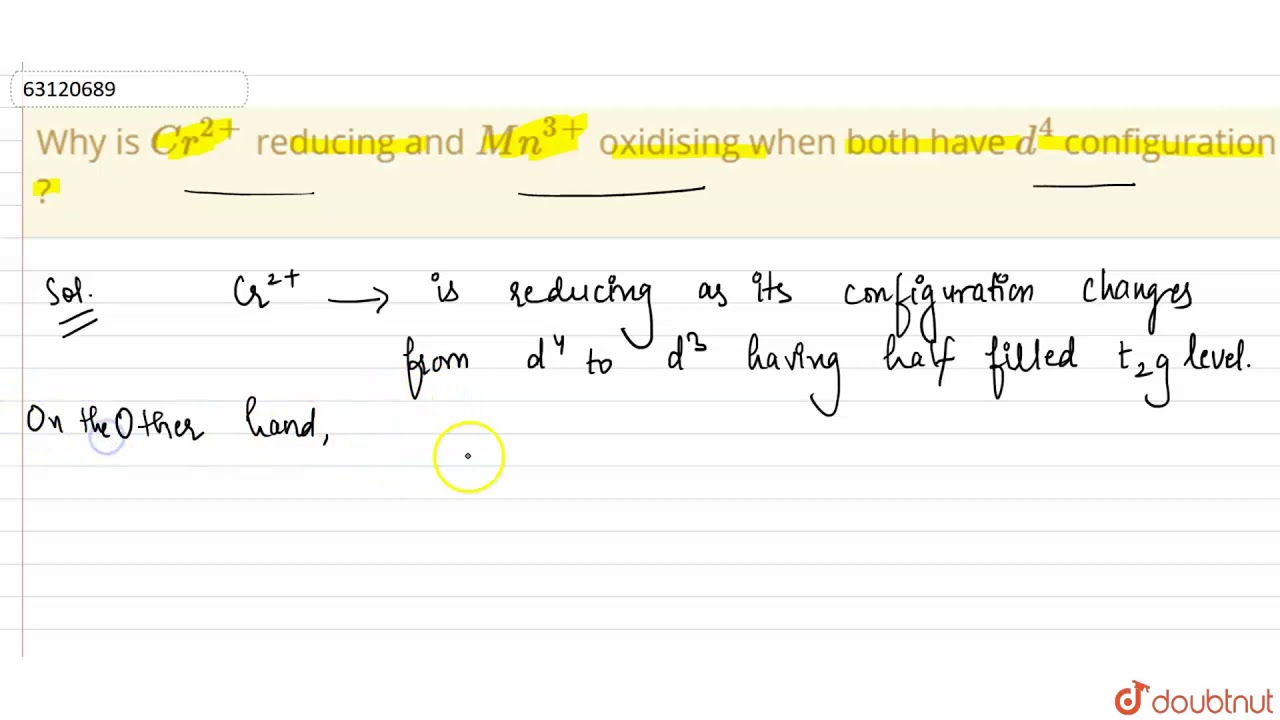 63120689
Why is Cr²⁺ reducing and Mn³⁺ oxidising when both have d⁴ configuration
?
Sol. Cr²⁺ → is reducing as its configuration changes
from d⁴ to d³ having half filled t₂g level.
On the Other hand,
doubtnut